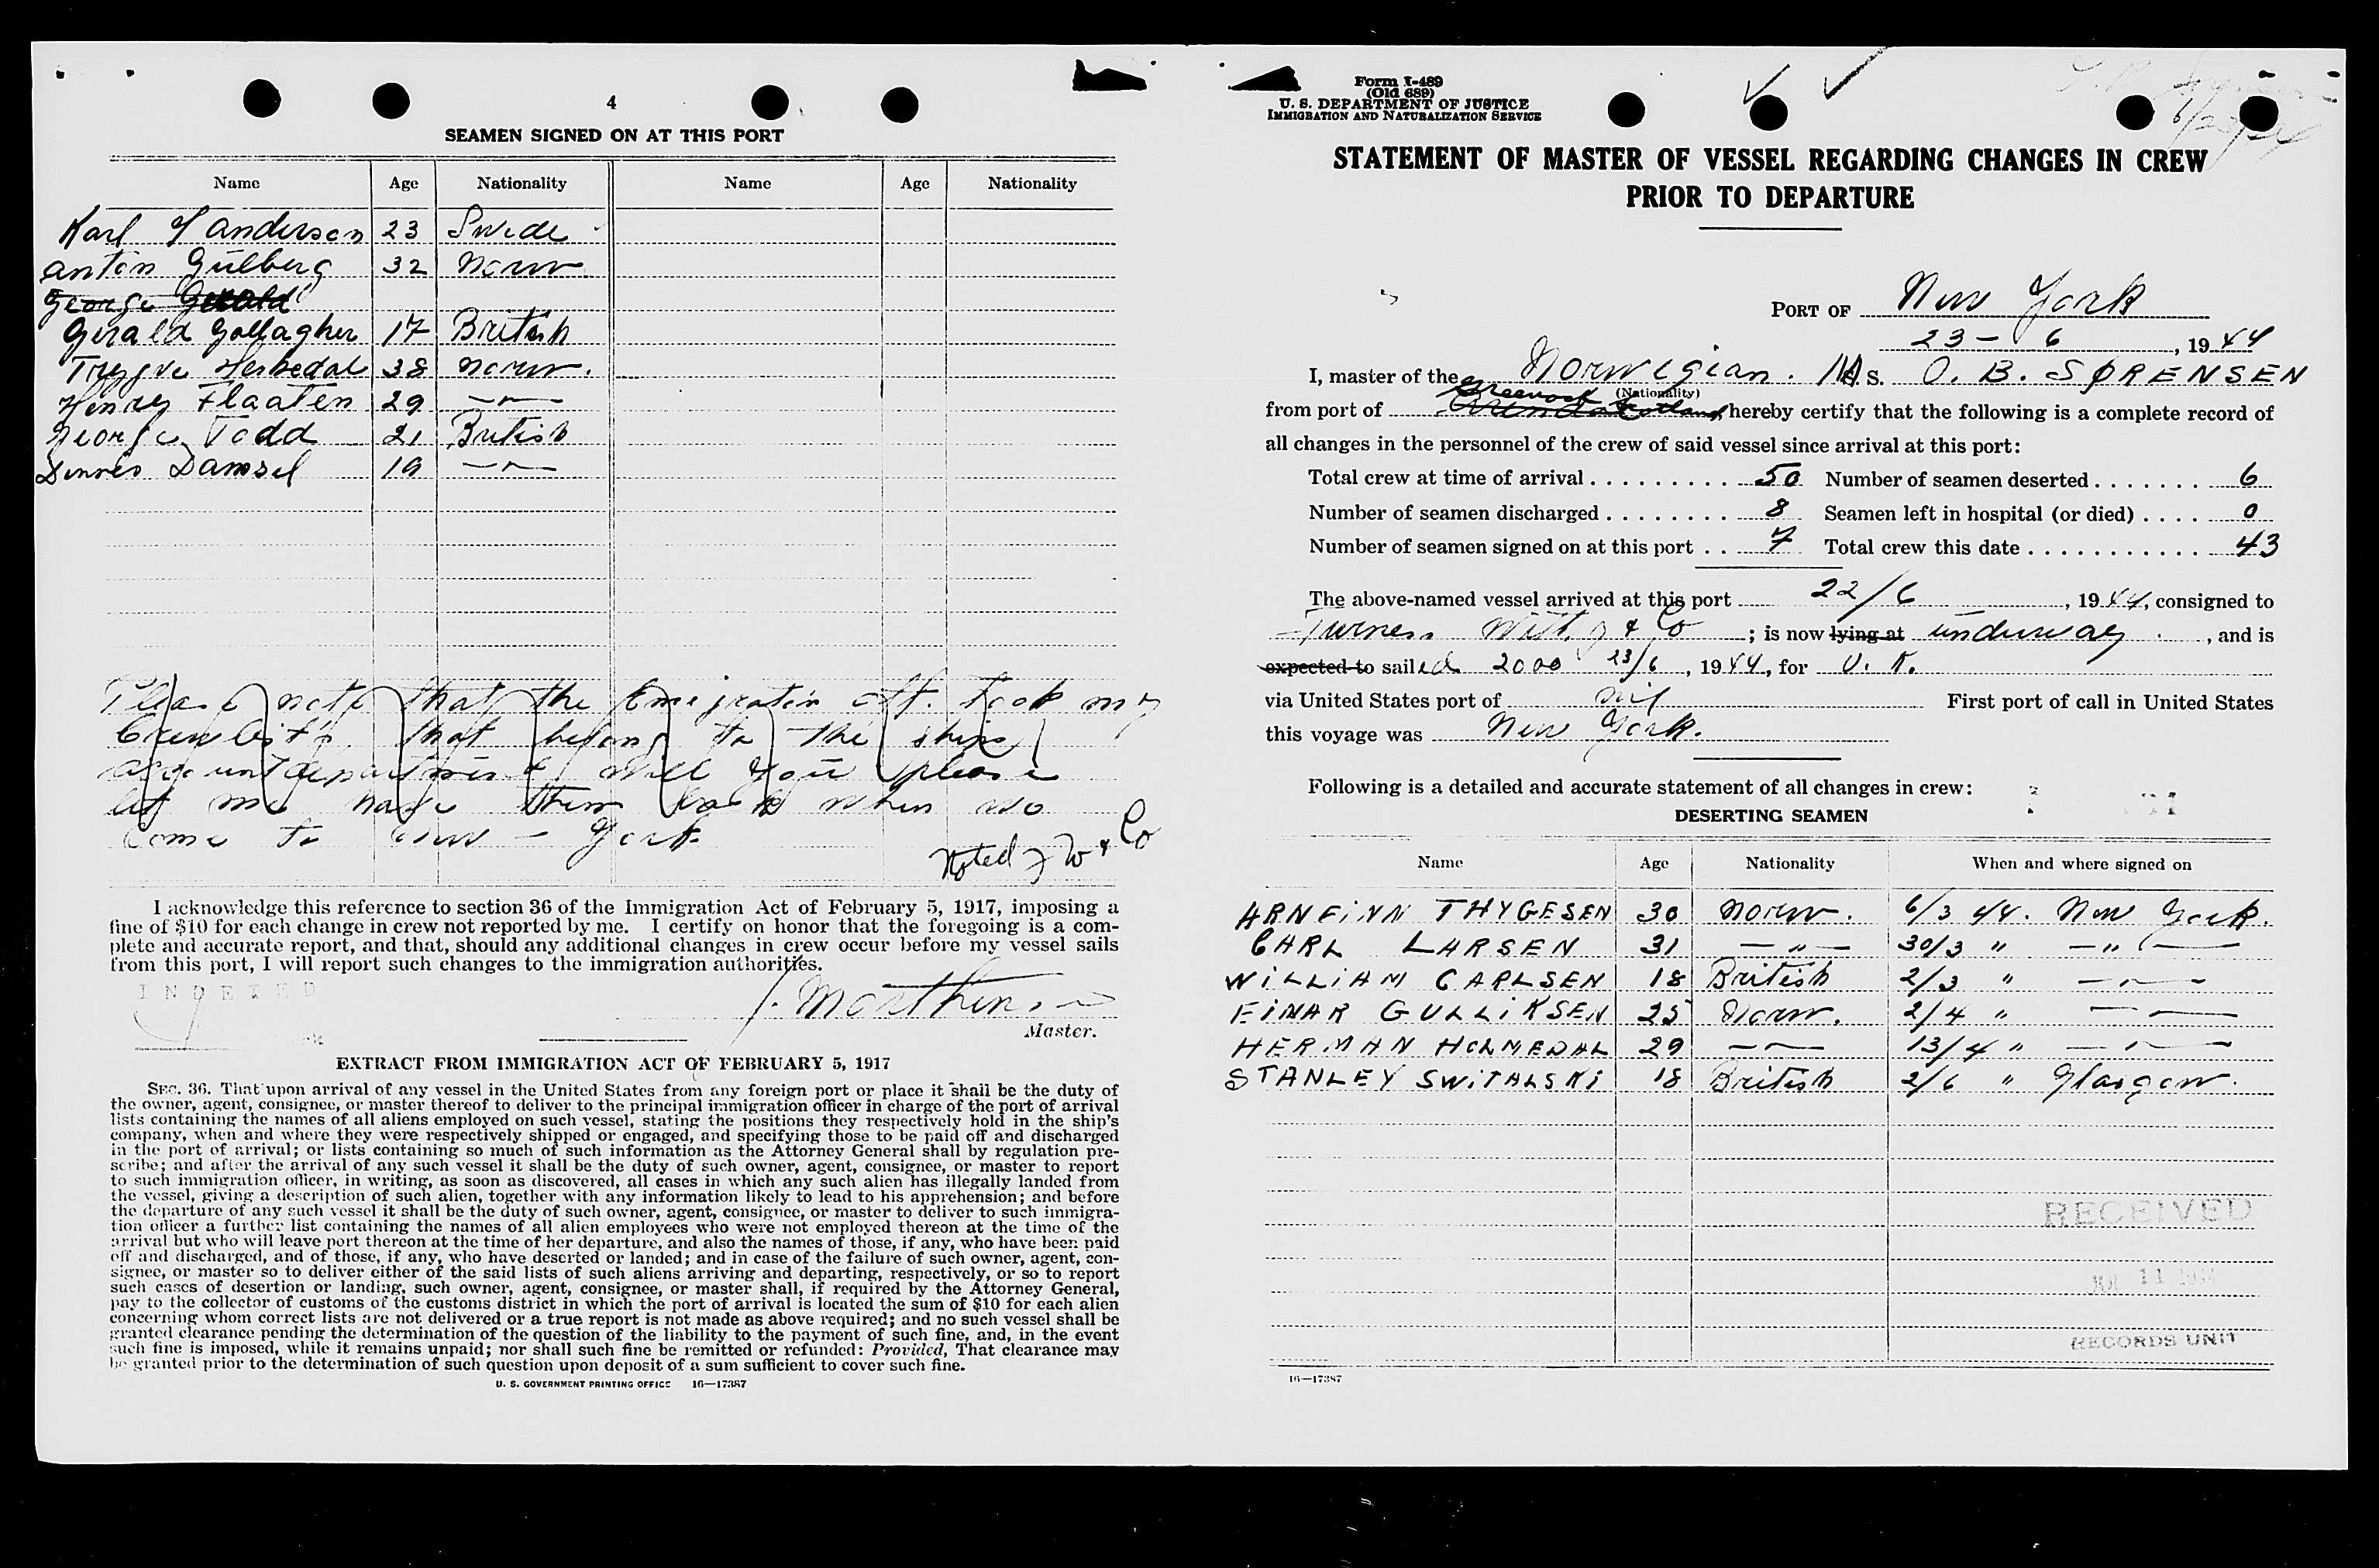 4
SEAMEN SIGNED ON AT THIS PORT
Name Age Nationality Name Age Nationality
Karl Y Anderson 23 Swede
Anton Gülberg 32 Norw
George Gerald
Gerald Gallagher 17 British
Trygve Hesbedal 38 Norw.
Henry Flaaten 29 —"—
George Todd 21 British
Dennis Damsel 19 —"—
Please note that the Emigration off. took my
Crewlist's that belong to the ships
account department, will you please
let me have them back when we
come to New-York
Noted F W & Co
I acknowledge this reference to section 36 of the Immigration Act of February 5, 1917, imposing a
fine of $10 for each change in crew not reported by me. I certify on honor that the foregoing is a com-
plete and accurate report, and that, should any additional changes in crew occur before my vessel sails
from this port, I will report such changes to the immigration authorities.
INDEXED
Master.
EXTRACT FROM IMMIGRATION ACT OF FEBRUARY 5, 1917
SEC. 36. That upon arrival of any vessel in the United States from any foreign port or place it shall be the duty of
the owner, agent, consignee, or master thereof to deliver to the principal immigration officer in charge of the port of arrival
lists containing the names of all aliens employed on such vessel, stating the positions they respectively hold in the ship's
company, when and where they were respectively shipped or engaged, and specifying those to be paid off and discharged
in the port of arrival; or lists containing so much of such information as the Attorney General shall by regulation pre-
scribe; and after the arrival of any such vessel it shall be the duty of such owner, agent, consignee, or master to report
to such immigration officer, in writing, as soon as discovered, all cases in which any such alien has illegally landed from
the vessel, giving a description of such alien, together with any information likely to lead to his apprehension; and before
the departure of any such vessel it shall be the duty of such owner, agent, consignee, or master to deliver to such immigra-
tion officer a further list containing the names of all alien employees who were not employed thereon at the time of the
arrival but who will leave port thereon at the time of her departure, and also the names of those, if any, who have been paid
off and discharged, and of those, if any, who have deserted or landed; and in case of the failure of such owner, agent, con-
signee, or master so to deliver either of the said lists of such aliens arriving and departing, respectively, or so to report
such cases of desertion or landing, such owner, agent, consignee, or master shall, if required by the Attorney General,
pay to the collector of customs of the customs district in which the port of arrival is located the sum of $10 for each alien
concerning whom correct lists are not delivered or a true report is not made as above required; and no such vessel shall be
granted clearance pending the determination of the question of the liability to the payment of such fine, and, in the event
such fine is imposed, while it remains unpaid; nor shall such fine be remitted or refunded: Provided, That clearance may
be granted prior to the determination of such question upon deposit of a sum sufficient to cover such fine.
U. S. GOVERNMENT PRINTING OFFICE 16—17387
Form I-489
(Old 689)
U. S. DEPARTMENT OF JUSTICE
IMMIGRATION AND NATURALIZATION SERVICE
STATEMENT OF MASTER OF VESSEL REGARDING CHANGES IN CREW
PRIOR TO DEPARTURE
PORT OF New York
23 - 6, 1944
I, master of the Norwegian. M.S. O. B. SØRENSEN
(Nationality)
from port of Greenock Scotland, hereby certify that the following is a complete record of
all changes in the personnel of the crew of said vessel since arrival at this port:
Total crew at time of arrival 50 Number of seamen deserted 6
Number of seamen discharged 8 Seamen left in hospital (or died) 0
Number of seamen signed on at this port 7 Total crew this date 43
The above-named vessel arrived at this port 22/6, 1944, consigned to
Furness With. & Co; is now lying at underway, and is
expected to sailed 2000 23/6, 1944, for U. K.
via United States port of nil First port of call in United States
this voyage was New York.
Following is a detailed and accurate statement of all changes in crew:
DESERTING SEAMEN
Name Age Nationality When and where signed on
ARNFINN THYGESEN 30 Norw. 6/3 44. New York.
CARL LARSEN 31 —"— 30/3 " —"—
WILLIAM CARLSEN 18 British 2/3 " —"—
EINAR GULLIKSEN 25 Norw. 2/4 " —"—
HERMAN HOLMEDAL 29 —"— 13/4 " —"—
STANLEY SWITALSKI 18 British 2/6 " Glasgow.
RECEIVED
JUL 11 1944
RECORDS UNIT
16—17387